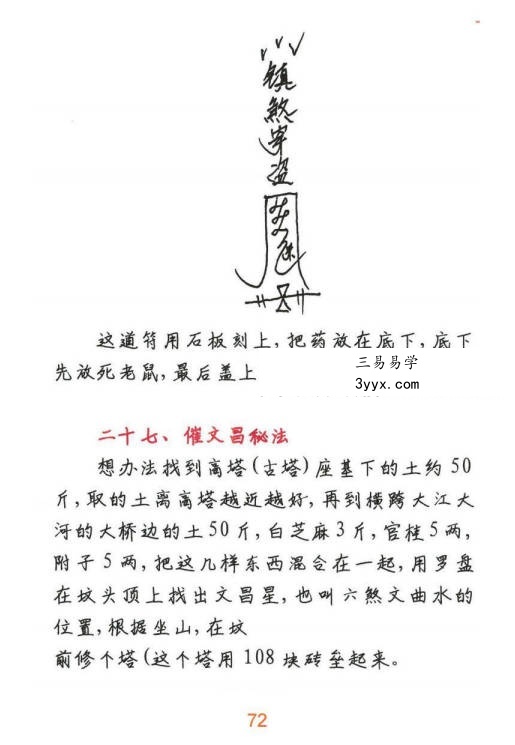 镇
煞
这道符用石板刻上，把药放在底下，底下
先放死老鼠，最后盖上
三易易学
3yyx.com
二十七、催文昌秘法
想办法找到高塔(古塔)座基下的土约50
斤，取的土离高塔越近越好，再到横跨大江大
河的大桥边的土50斤，白芝麻3斤，官桂5两，
附子5两，把这几样东西混合在一起，用罗盘
在坟头顶上找出文昌星，也叫六煞文曲水的
位置，根据坐山，在坟
前修个塔(这个塔用108块砖垒起来。
72